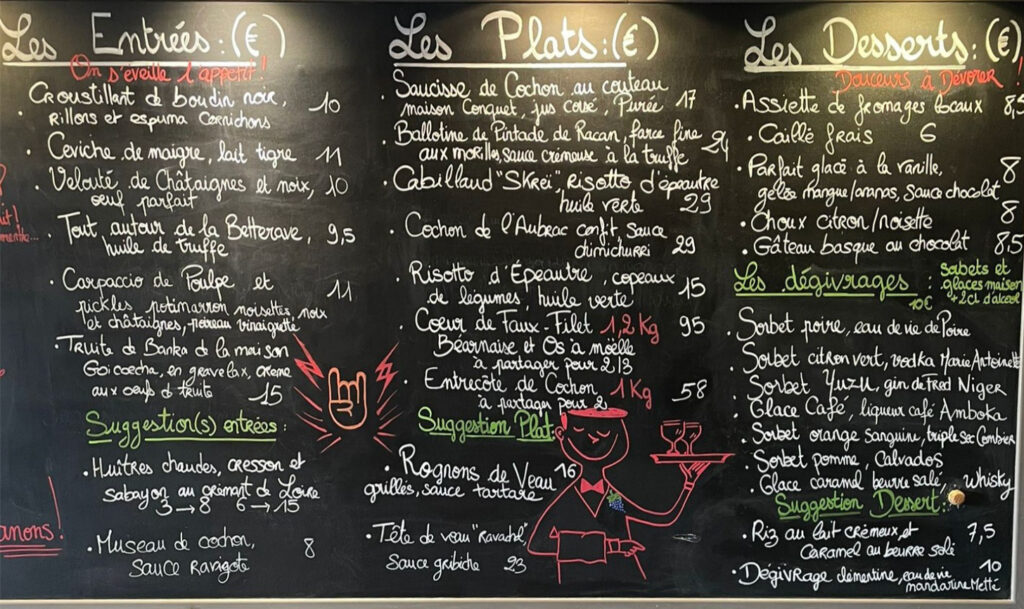 Les Entrées : (€)
On s'éveille l'appétit !
. Croustillant de boudin noir, 10
Rillons et espuma Cornichons
. Ceviche de maigre, lait tigre 11
. Velouté de Châtaignes et noix, 10
oeuf parfait
. Tout autour de la Betterave, 9,5
huile de truffe
. Carpaccio de Poulpe et 11
pickles potimarron noisettes noix
et châtaignes, poireau vinaigrette
. Truite de Banka de la maison
Goicoecha, en gravelax, crème
aux oeufs de truite 15
Suggestion(s) entrées :
. Huîtres chaudes, cresson et
sabayon au crémant de Loire
3 → 8 6 → 15
. Museau de cochon, 8
sauce Ravigote
Les Plats : (€)
Saucisse de Cochon au couteau
maison Conquet, jus corsé, Purée 17
. Ballotine de Pintade de Racan, farce fine 24
aux morilles, sauce crèmeuse à la truffe
. Cabillaud "Skrei", Risotto d'épeautre
huile verte 29
. Cochon de l'Aubrac confit, sauce
chimichurri 29
. Risotto d'Épeautre, copeaux 15
de légumes, huile verte
. Coeur de Faux-Filet 1,2 Kg 95
Béarnaise et Os à moëlle
à partager pour 2/3
. Entrecôte de Cochon 1 Kg 58
à partager pour 2
Suggestion Plat
. Rognons de Veau 16
grillés, sauce tartare
. Tête de veau "Ravachol"
sauce gribiche 23
Les Desserts : (€)
Douceurs à Dévorer !
. Assiette de fromages locaux 8,5
. Caillé frais 6
. Parfait glacé à la vanille, 8
gelée mangue/ananas, sauce chocolat
. Choux citron/noisette 8
. Gâteau basque au chocolat 8,5
Les dégivrages : sorbets et
glaces maison
10€ + 2cl d'alcool
. Sorbet poire, eau de vie de Poire
. Sorbet citron vert, vodka Marie Antoinette
. Sorbet Yuzu, gin de Fred Niger
. Glace Café, liqueur café Amboka
. Sorbet orange sanguine, triple sec Combier
. Sorbet pomme, Calvados
. Glace caramel beurre salé, whisky
Suggestion Dessert :
. Riz au lait crémeux et 7,5
caramel au beurre salé
. Dégivrage clémentine, eau de vie 10
mandarine Metté